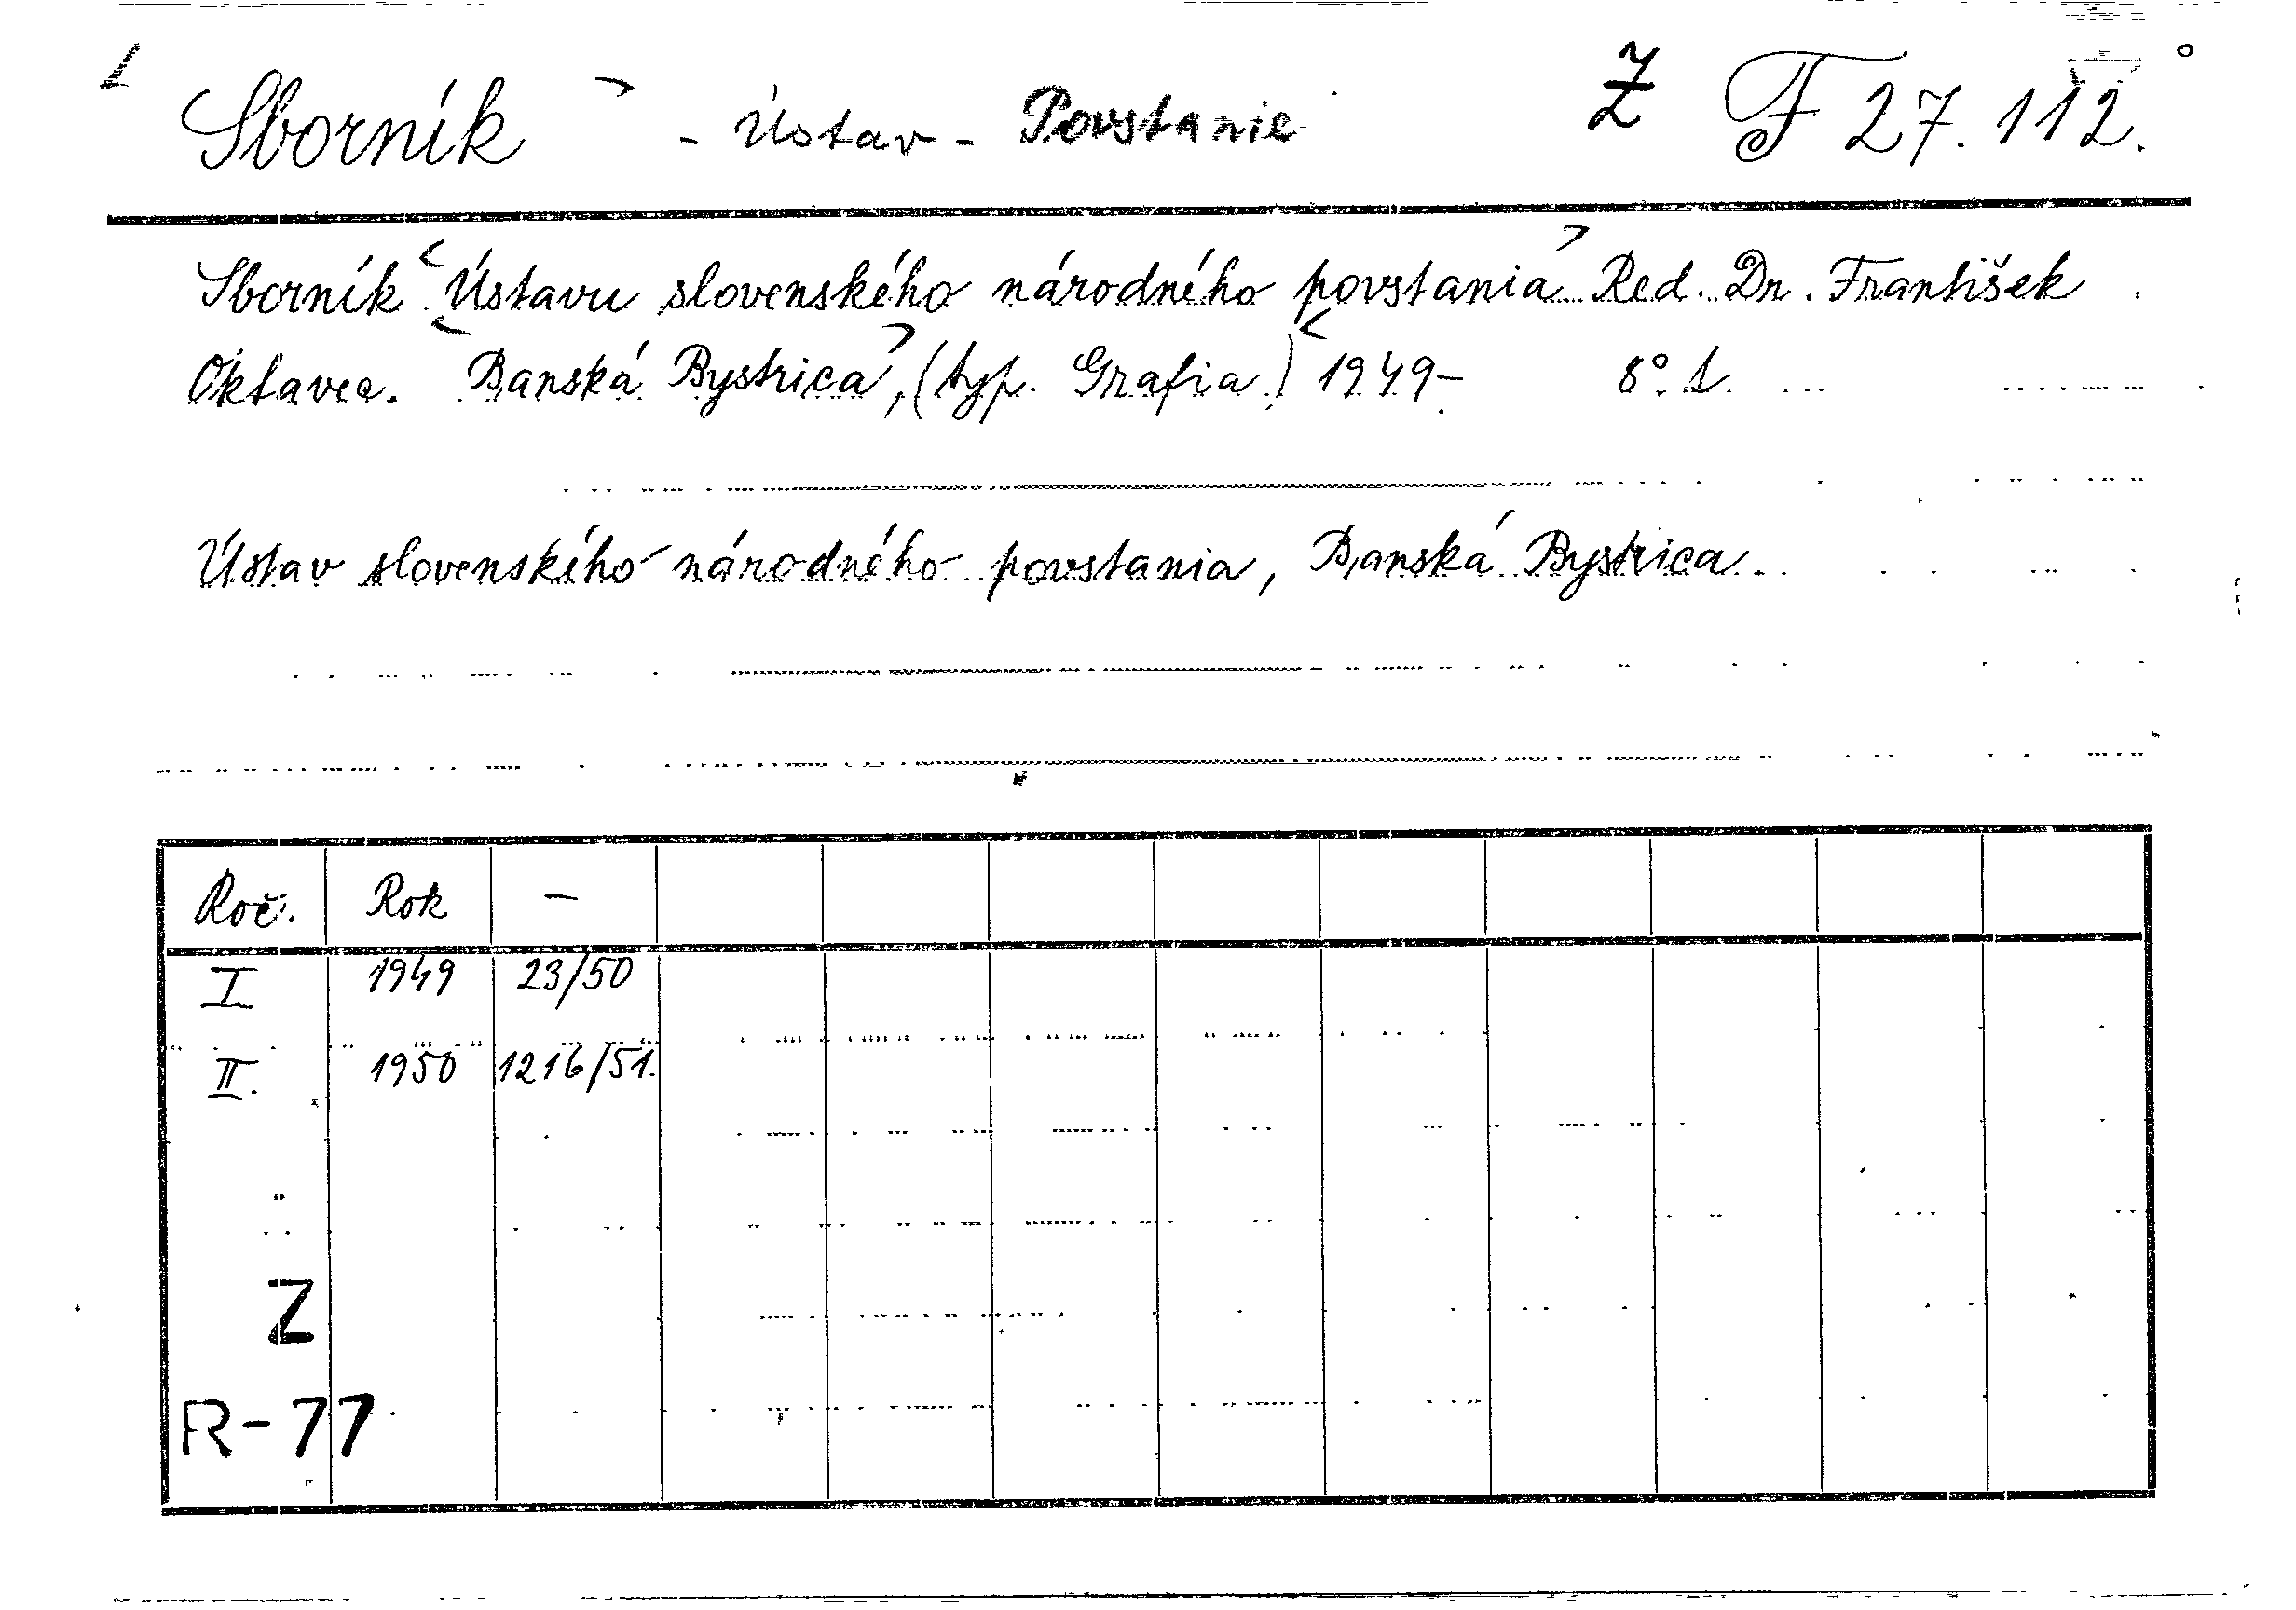 Sborník - Ústav - Povstanie Z F 27.112.
Sborník Ústavu slovenského národného povstania Red. Dr. František
Oktavec. Banská Bystrica, (typ. Grafia) 1949- 8°.
Ústav slovenského národného povstania, Banská Bystrica.
Roč. Rok -
I 1949 23/50
II. 1950 1216/51.
Z
R-77